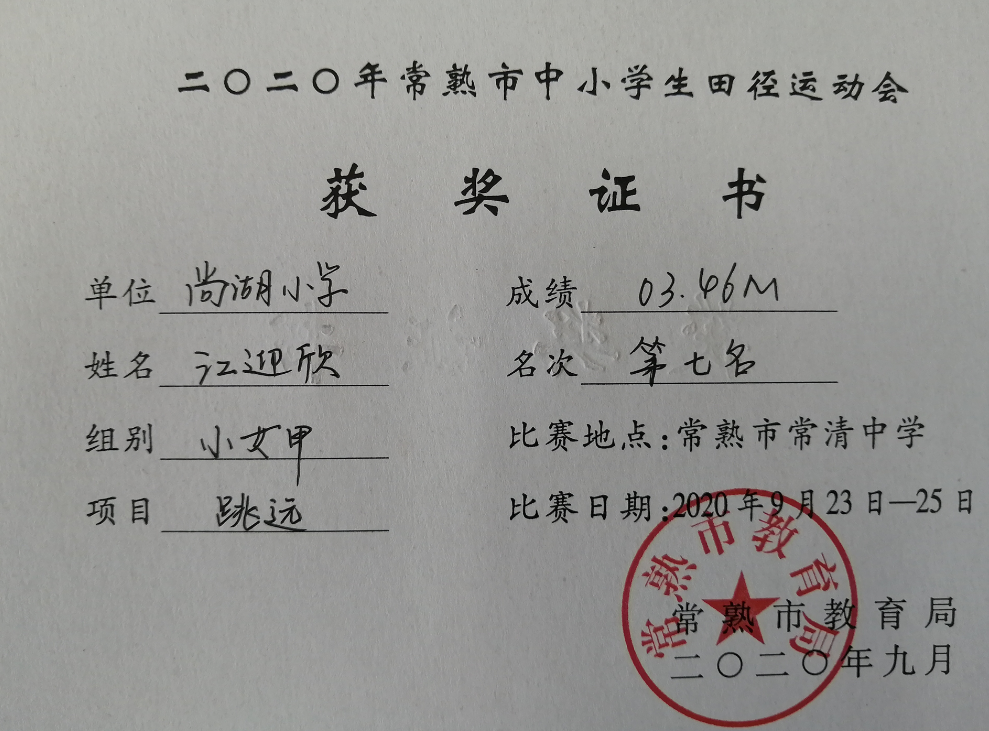 二〇二〇年常熟市中小学生田径运动会
获奖证书
单位 尚湖小学 成绩 03.46M
姓名 江迎欣 名次 第七名
组别 小女甲 比赛地点:常熟市常清中学
项目 跳远 比赛日期:2020年9月23日—25日
常熟市教育局
常熟市教育局
二〇二〇年九月